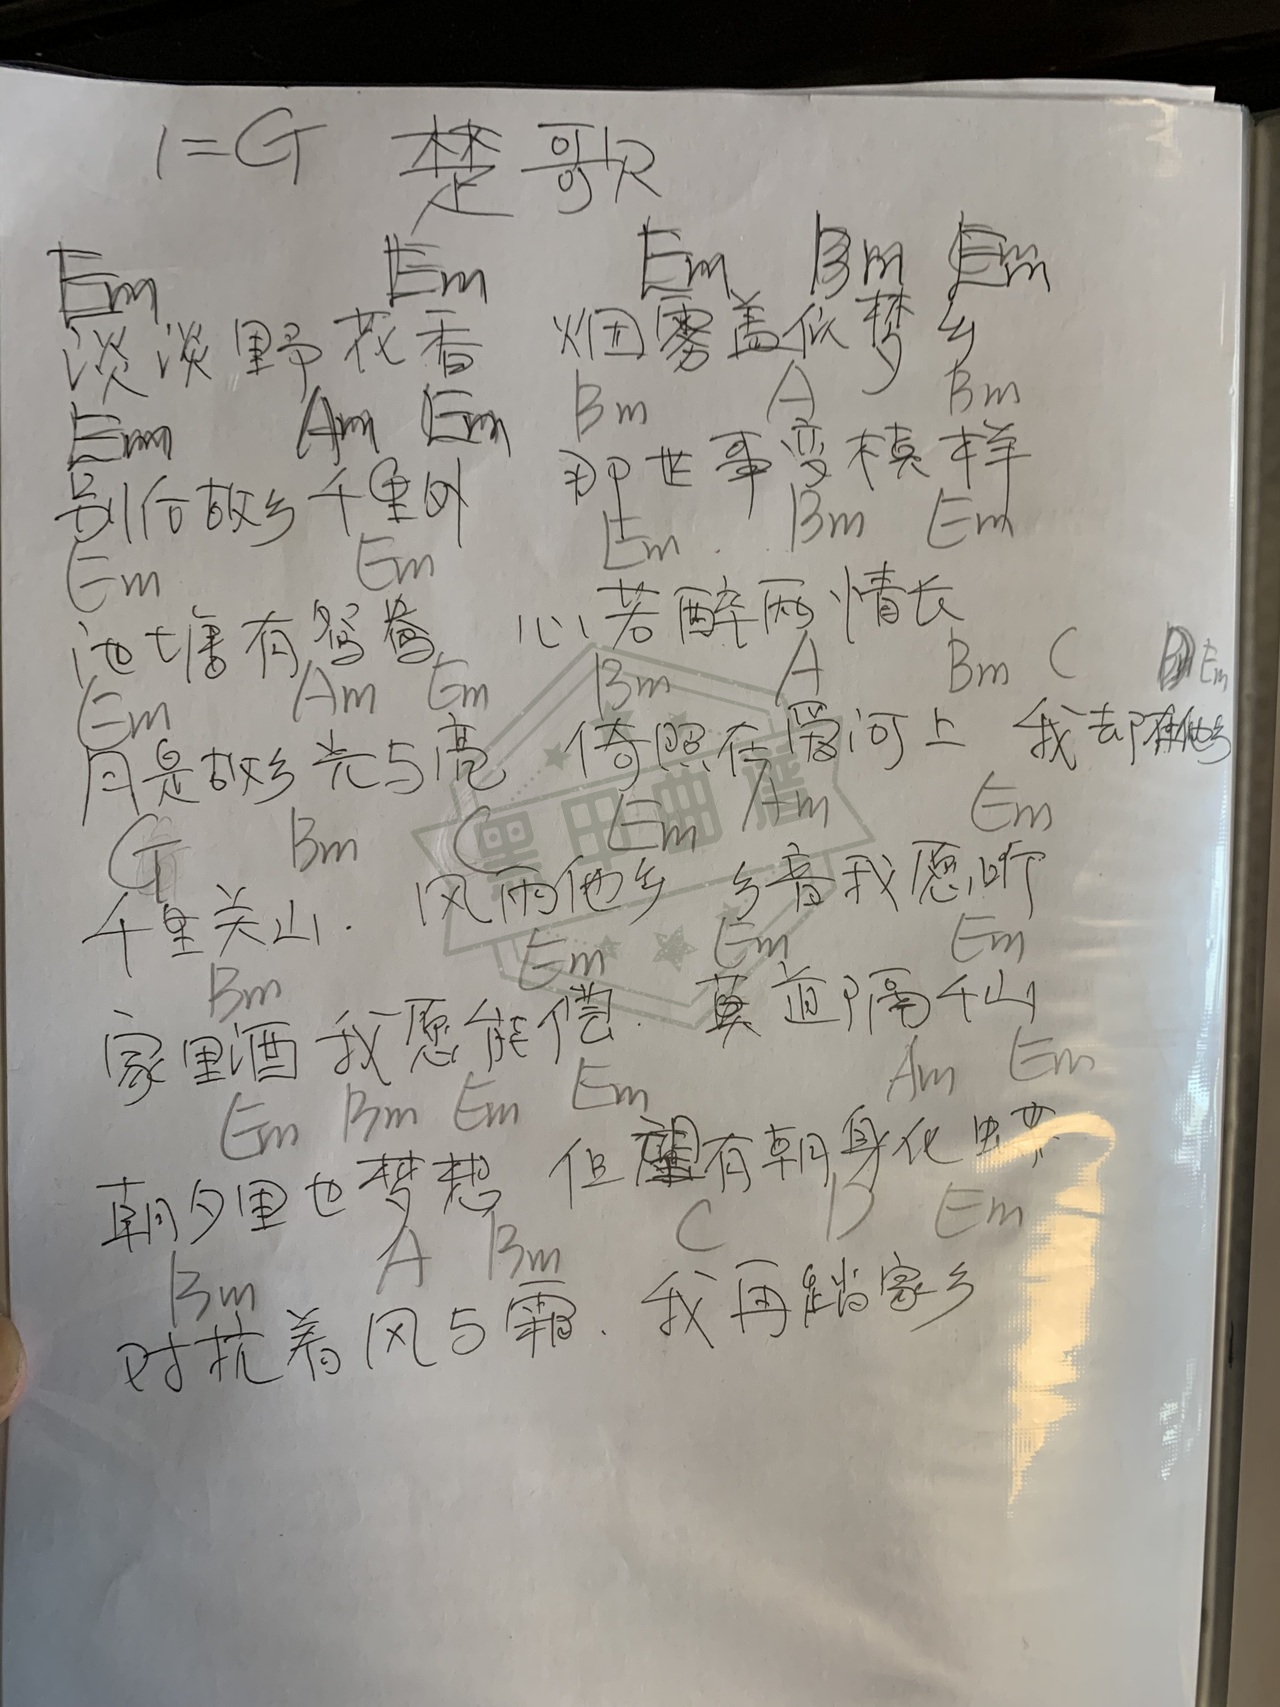 1=G 楚歌
Em Em Em Bm Em
淡淡野花香 烟雾盖似梦乡
Em Am Em Bm A Bm
别后故乡千里外 那世事变模样
Em Em Em. Bm Em
池塘有鸳鸯 心若醉两情长
Em Am Em Bm A Bm C Em
月是故乡光与亮 倚照在爱河上 我却在他乡
G Bm C Em Am Em
千里关山. 风雨他乡 乡音我愿听
Bm Em Em Em
家里酒我愿能偿. 莫道隔千山
Em Bm Em Em Am Em
朝夕里也梦想 但有朝身化
Bm A Bm C D Em
对抗着风与霜. 我再踏家乡
黑甲曲谱